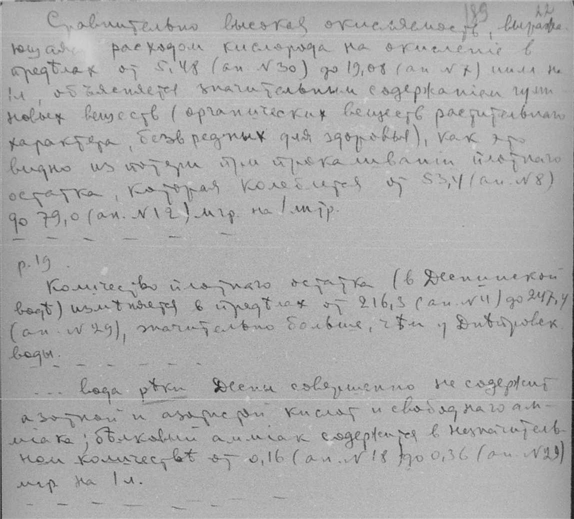 189 22
Сравнительно высокая окисляемость, выражаю-
ющаяся расходом кислорода на окисленіе в
предѣлах от 5,48 (ан. №30) до 19,08 (ан. №7) млгр на
1л, объясняется значительным содержаніем гуми-
новых веществ (органических веществ растительнаго
характера, безвредных для здоровья), как это
видно из потери при прокаливаніи плотнаго
остатка, которая колеблется от 53,4 (ан. №8)
до 79,0 (ан. №12) мгр. на 1 литр.
р. 19
Количество плотнаго остатка (в Деснинской
водѣ) измѣняется в предѣлах от 216,3 (ан. №11) до 247,4
(ан. №29), значительно больше, чѣм у Днѣпровск
воды.
... вода рѣки Десны совершенно не содержит
азотной и азотистой кислот и свободнаго ам-
міака; бѣлковый амміак содержится в незначитель-
ном количествѣ от 0,16 (ан. №18) до 0,36 (ан. №29)
мгр на 1л.